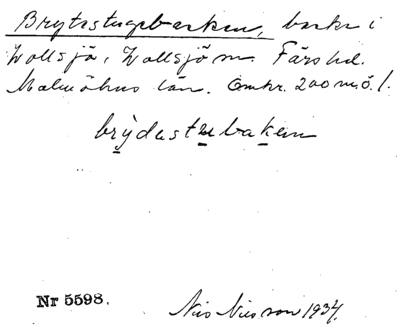 Brytestugebacken, backe i
Vollsjö, Vollsjö sn. Färs hd.
Malmöhus län. Omkr. 200 m. ö. f.
brỳdestubakein
Nr 5598.
Nils Nilsson 1934.